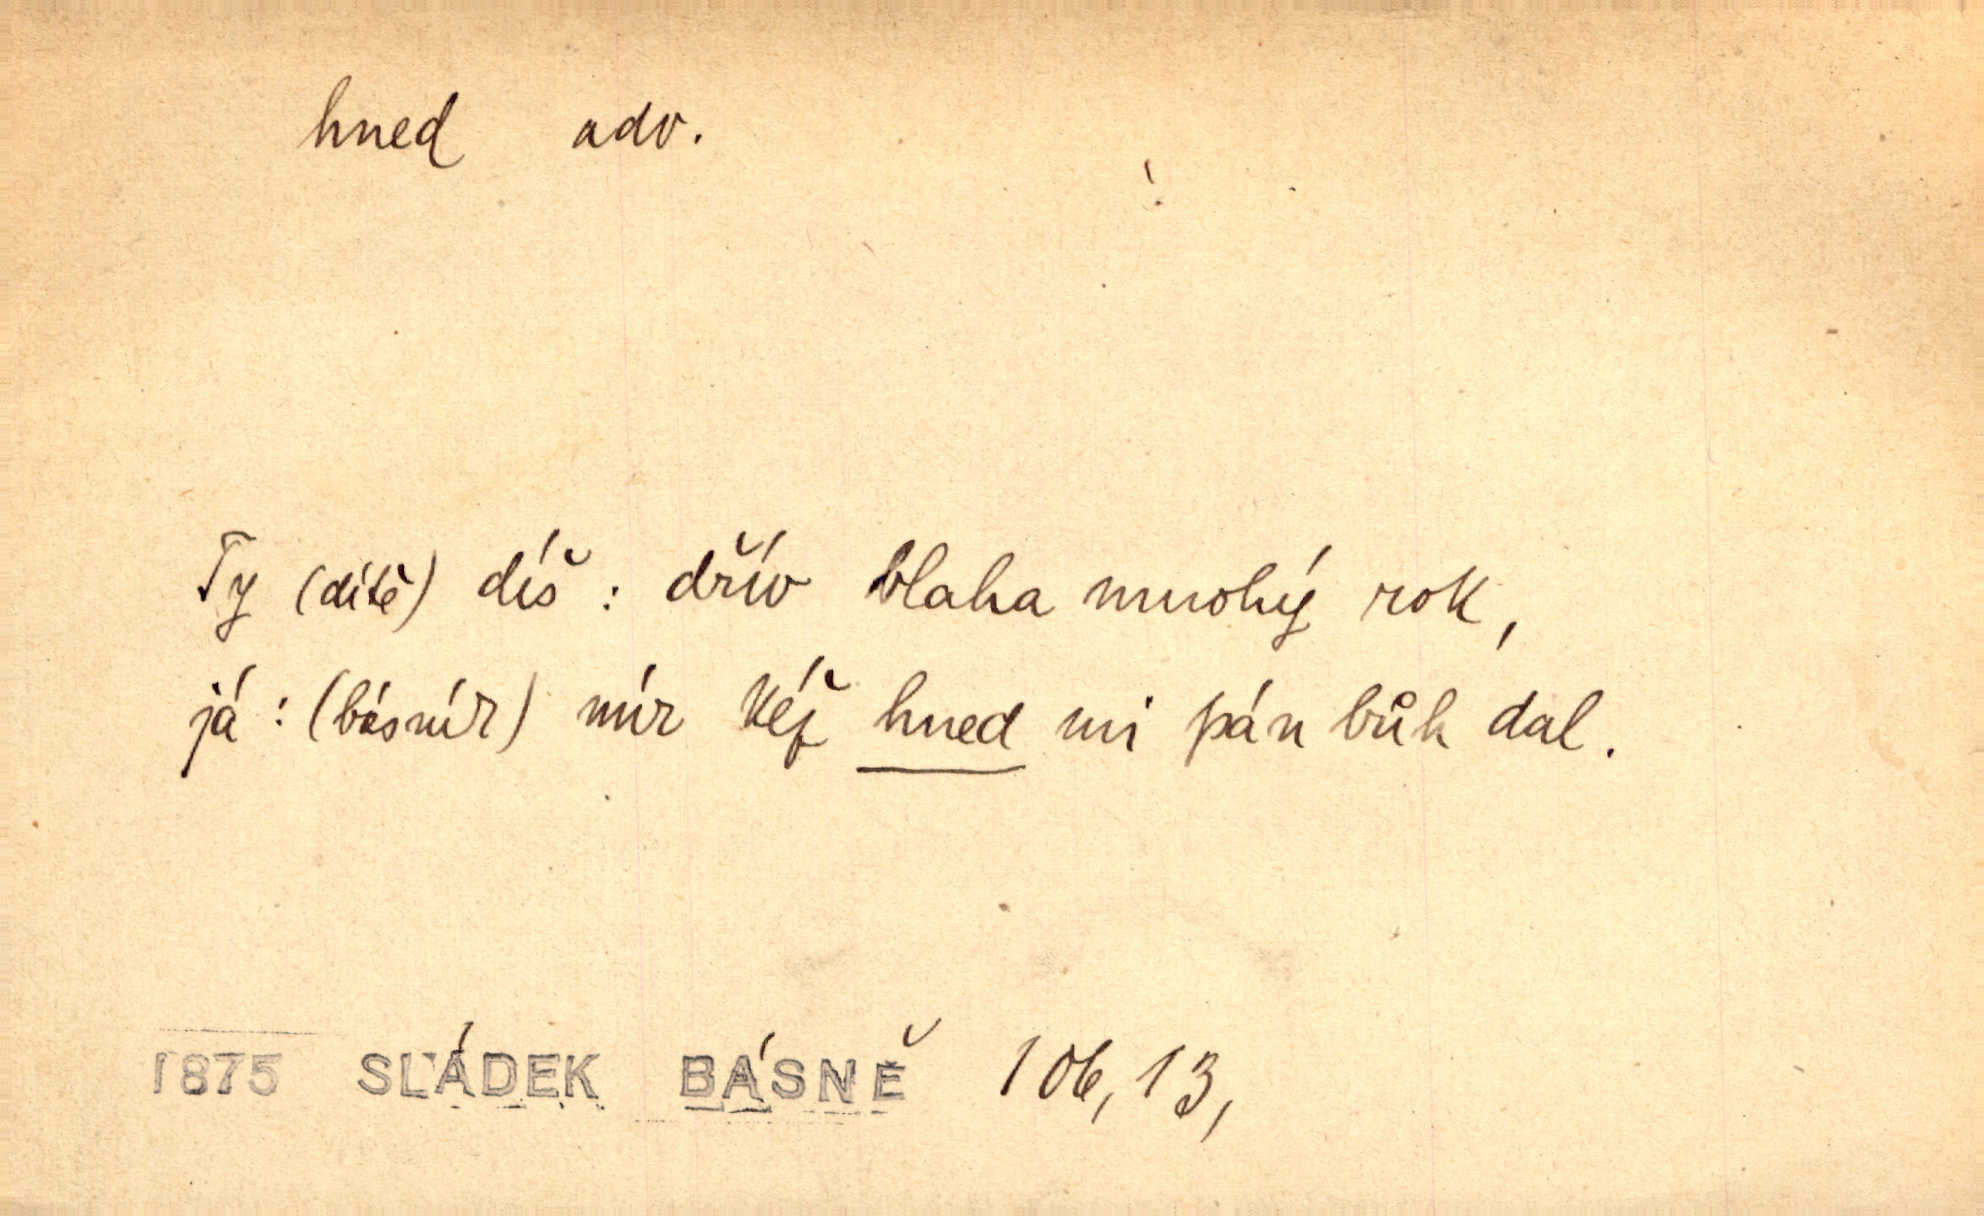 hned adv.
Ty (dítě) díš : dřív blaha mnohý rok,
já : (básník) mír kéž hned mi pán bůh dal.
1875 SLÁDEK BÁSNĚ 106, 13,